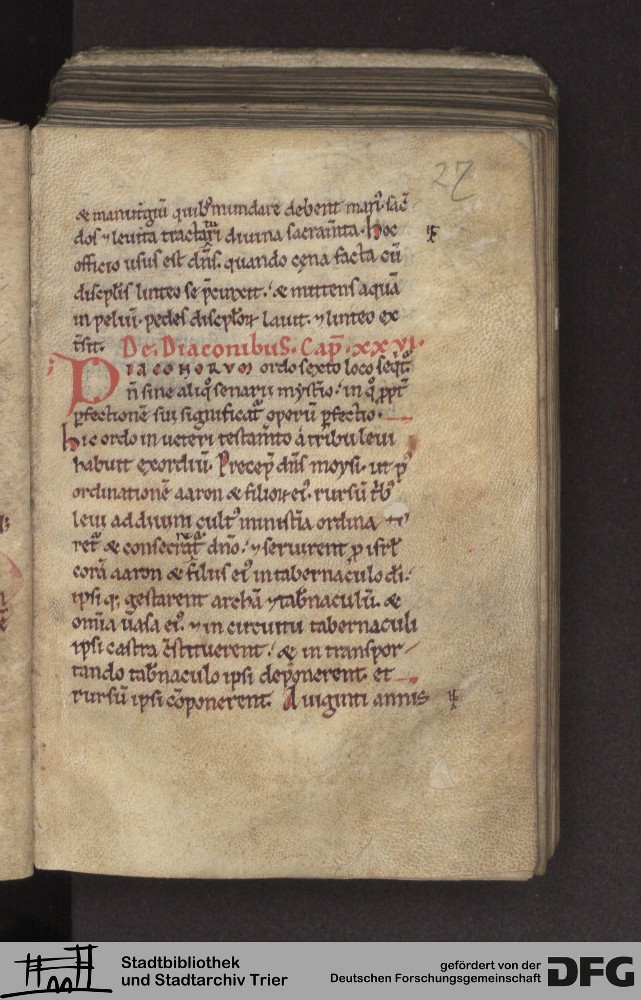 27
& manutgiū quib' mundare debent man' sac̄
dos ⁊ leuita tractaturi diuina sacram̄ta. Hoc
officio usus est dn̄s. quando cena facta cū
discip̄lis linteo se p̄cinxit. & mittens aquā
in peluī. pedes discip̄loꝝ lauit. ⁊ linteo ex
t̄sit. De Diaconibus. Cap̄. xxvi.
DIACONORVM ordo sexto loco seq̄t'.
n̄ sine aliq° senarii mysт̄io. in q° ꝓpt'
ꝑfectionē sui significat' operū ꝑfectio.
hic ordo in ueteri testam̄to a tribu leui
habuit exordiū. Precep̄ dn̄s moysi. ut p'
ordinationē aaron & filioꝝ ei'. rursū t'b'
leui ad diuini cult' minist̄ia ordina
ret' & consecrat' dn̄o. ⁊ seruirent ꝓ isrł
corā aaron & filiis ei' in tabernaculo di.
ipsi q; gestarent archā ⁊ tab̄naculū. &
om̄ia uasa ei'. ⁊ in circuitu tabernaculi
ipsi castra c̄stituerent. & in transpor
tando tab̄naculo ipsi deponerent. et
rursū ipsi cōponerent. A uiginti annis
Stadtbibliothek
und Stadtarchiv Trier
gefördert von der
Deutschen Forschungsgemeinschaft
DFG